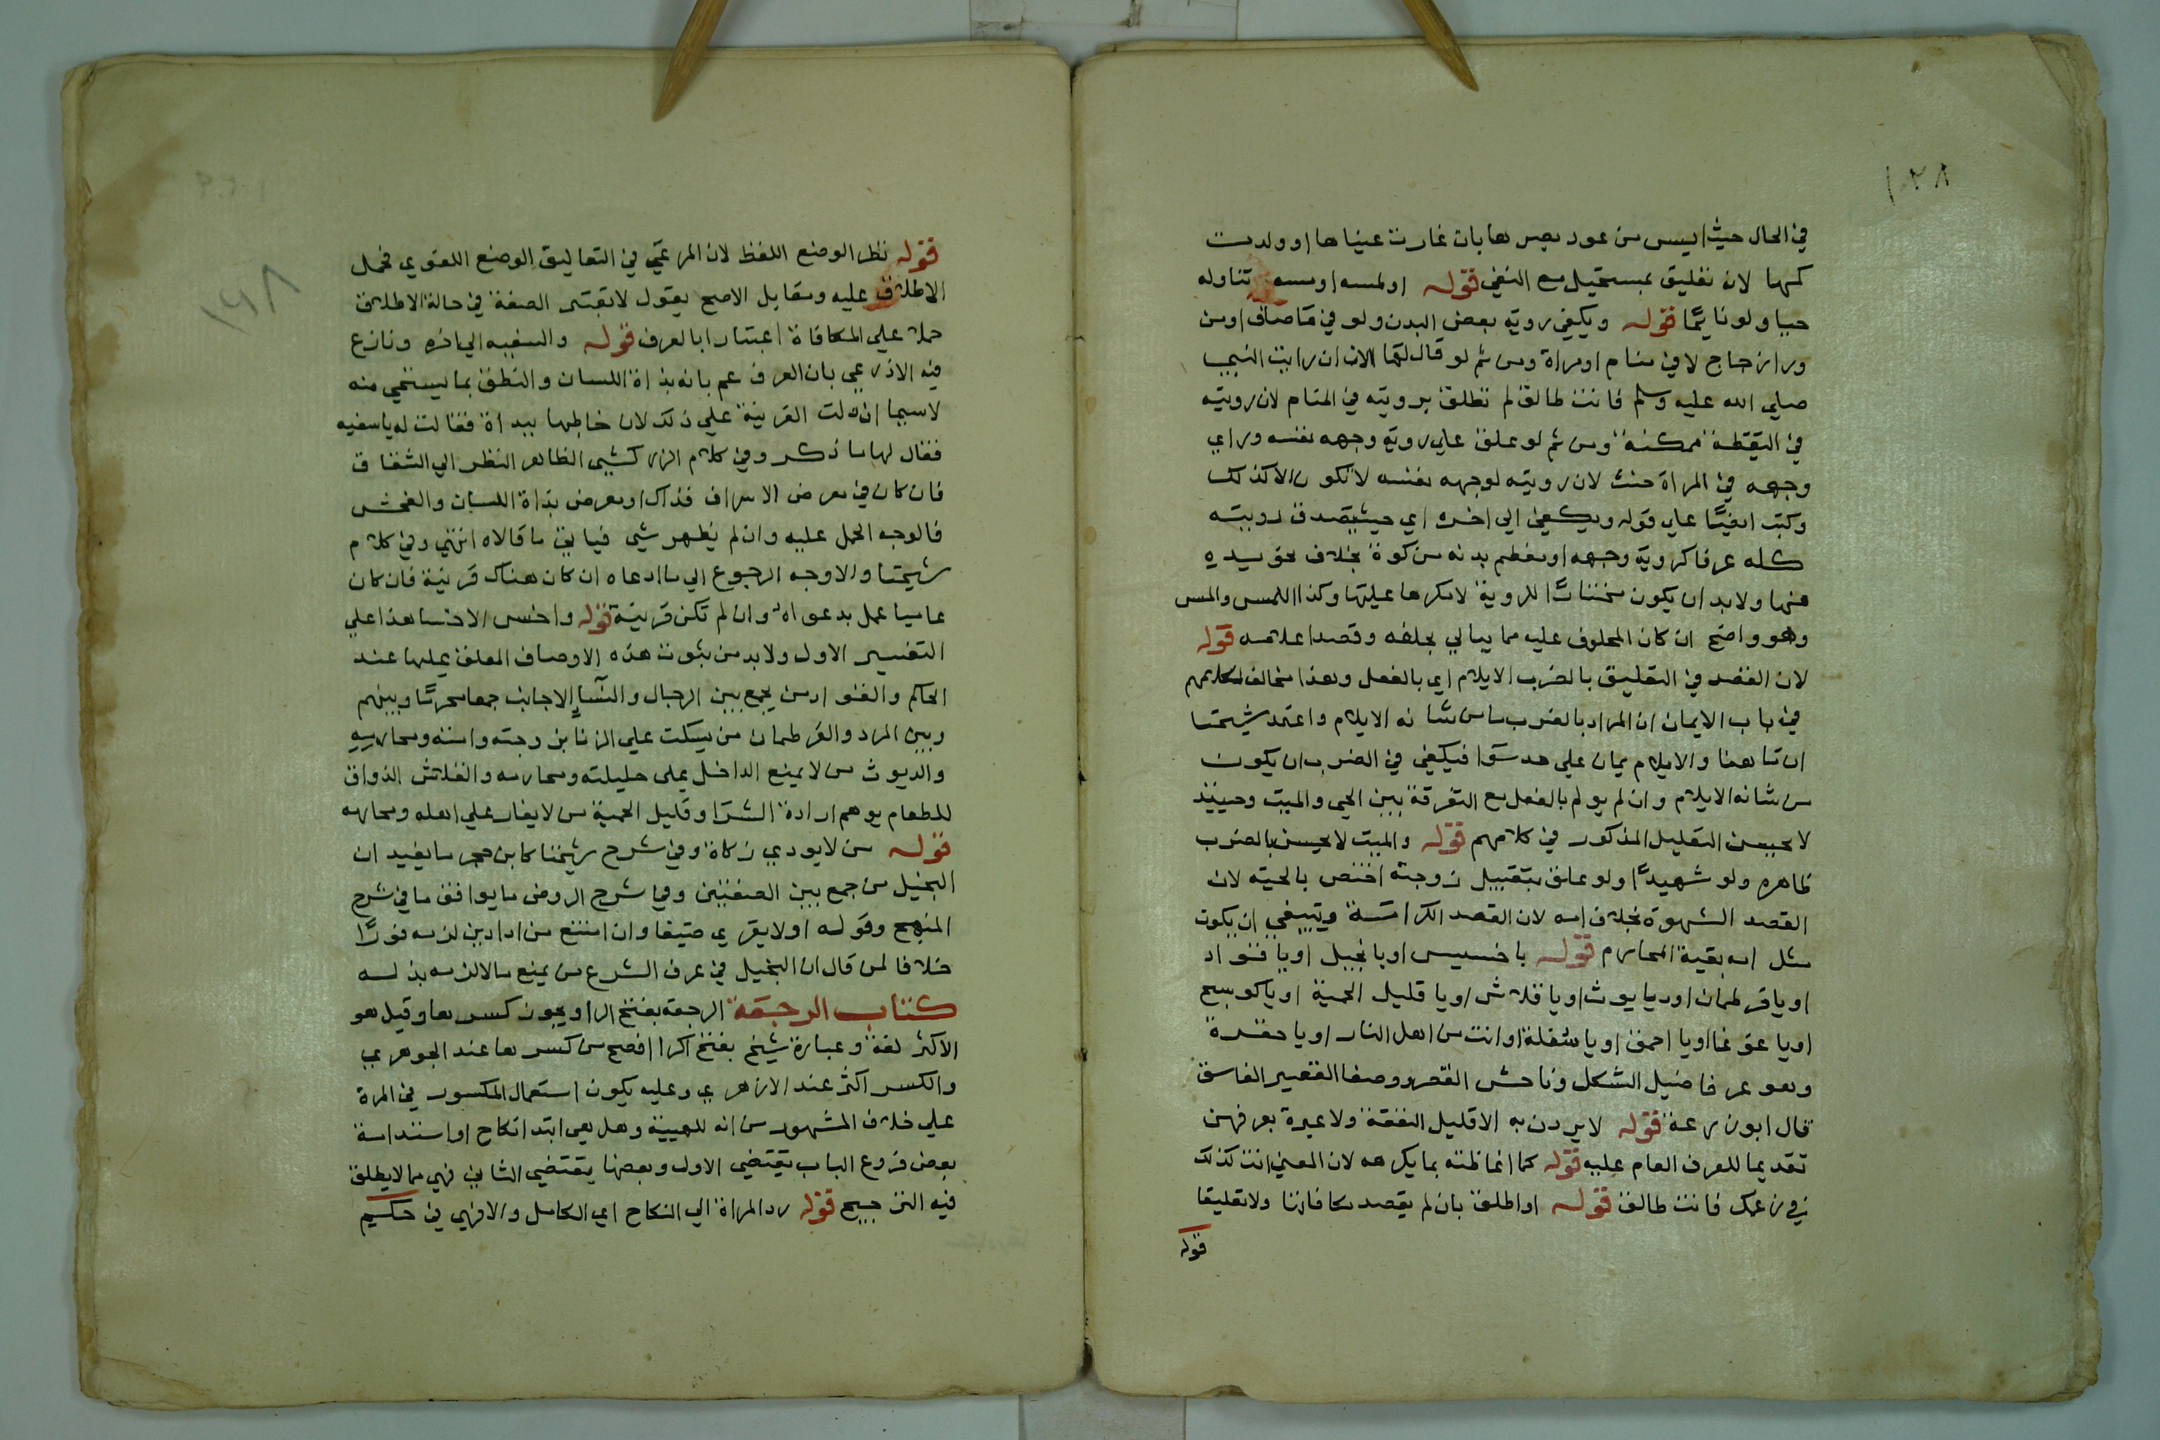 ١٠٢٨
في الحال حيث ايس من عود بصرها بان غارت عيناها او ولدت
كمها لان تعليق بمستحيل مع النفي قوله او لمسه او مسه تناوله
حيا ولو نايمًا قوله ويكفي روية بعض البدن ولو في ما صاف او من
ورا زجاج لا في منام او مراة ومن ثم لو قال لها الان ان رايت النبي
صلي الله عليه وسلم فانت طالق لم تطلق برويته في المنام لان رويته
في اليقظة ممكنة ومن ثم لو علق علي روية وجهه نفسه وراي
وجهه في المراة حنث لان رويته لوجهه نفسه لا تكون الا كذلك
وكتب ايضًا علي قوله ويكفي الي اخره اي حيث يصدق رويته
كله عرفا كروية وجهه او معظم بدنه من كوة بخلاف نحو يده
منها ولا بد ان يكون مختارًا للروية لا مكرها عليها وكذا اللمس والمس
وهو واضح ان كان المحلوف عليه مما يبالي بحلفه وقصد اعلامه قوله
لان القصد في التعليق بالضرب الايلام اي بالفعل وهذا مخالف لكلامهم
في باب الايمان ان المراد بالضرب ما من شانه الايلام واعتمد شيخنا
ان ما هنا والايلام يمان علي حد سوا فيكفي في الضرب ان يكون
من شانه الايلام وان لم يولم بالفعل مع التفرقة بين الحي والميت وحينيذ
لا يحسن التعليل المذكور في كلامهم قوله والميت لا يحسن بالضرب
ظاهره ولو شهيدًا ولو علق بتقبيل زوجته اختص بالحية لان
القصد الشهوة بخلاف امه لان القصد الكرامة وينبغي ان يكون
مثل امه بقية المحارم قوله يا خسيس او يا بخيل او يا قواد
او يا قرطبان او يا ديوث او يا قلاش او يا قليل الحمية او يا كوسج
او يا عوغا او يا احمق او يا سفلة او انت من اهل النار او يا حفرة
وهو عرفا ضيل الشكل فاحش القصر ووصفا القصير الفاسق
قال ابو زرعة قوله لا يردن به الا قليل النفقة ولا عبرة بعرفهن
تقديما للعرف العام عليه قوله كما اغاظته بما يكرهه لان المعني انت كذلك
في زعمك فانت طالق قوله او اطلق بان لم يقصد مكافاتها ولا تعليقا
قوله
١٢٨
قوله نظر الوضع اللفظ لان المرعي في التعاليق الوضع اللغوي فحمل
الاطلاق عليه ومقابل الاصح يقول لا تعتبر الصفة في حالة الاطلاق
حملا علي المكافاة اعتبارا بالعرف قوله والسفيه الي اخره ونازع
فيه الاذرعي بان العرف عم بانه بذاة اللسان والنطق بما يستحي منه
لا سيما ان دلت القرينة علي ذلك لان خاطبها ببذاة فقالت له يا سفيه
فقال لها ما ذكر وفي كلام الزركشي الظاهر النظر الي الشقاق
فان كان في معرض الاسراف فذاك او معرض بذاة اللسان والفحش
فالوجه الحمل عليه وان لم يظهر شي فياتي ما قالاه انتهي وفي كلام
شيخنا والاوجه الرجوع الي ما ادعاه ان كان هناك قرينة فان كان
عاميا عمل بدعواه وان لم تكن قرينة قوله واخس الاخسا هذا علي
التفسير الاول ولا بد من ثبوت هذه الاوصاف المعلق عليها عند
الحاكم والقواد من يجمع بين الرجال والنسا الاجانب جمعا محرمًا وبينهم
وبين المرد والقرطبان من يسكت علي الزنا بزوجته وامنه ومحارمه
والديوث من لا يمنع الداخل علي حليلته ومحارمه والقلاش الذواق
للطعام يوهم ارادة الشرا وقليل الحمية من لا يغار علي اهله ومحارمه
قوله من لا يودي زكاة وفي شرح شيخنا كابن حجر ما يفيد ان
البخيل من جمع بين الصفتين وفي شرح الروض ما يوافق ما في شرح
المنهج وقوله او لا يقري ضيفا وان امتنع من ادا دين لزمه فورًا
خلافا لمن قال ان البخيل في عرف الشرع من يمنع مالا لزمه بذله
كتاب الرجعة الرجعة بفتح الرا ويجوز كسرها وقيل هو
الاكثر لغة وعبارة شيخ بفتح الرا افصح من كسرها عند الجوهري
والكسر اكثر عند الازهري وعليه يكون استعمال المكسور في المرة
علي خلاف المشهور من انه للهيية وهل هي ابتدا نكاح او استدامة
بعض فروع الباب يقتضي الاول وبعضها يقتضي الثاني فهي مما لا يطلق
فيه الترجيح قوله رد المراة الي النكاح اي الكامل والا فهي في حكم